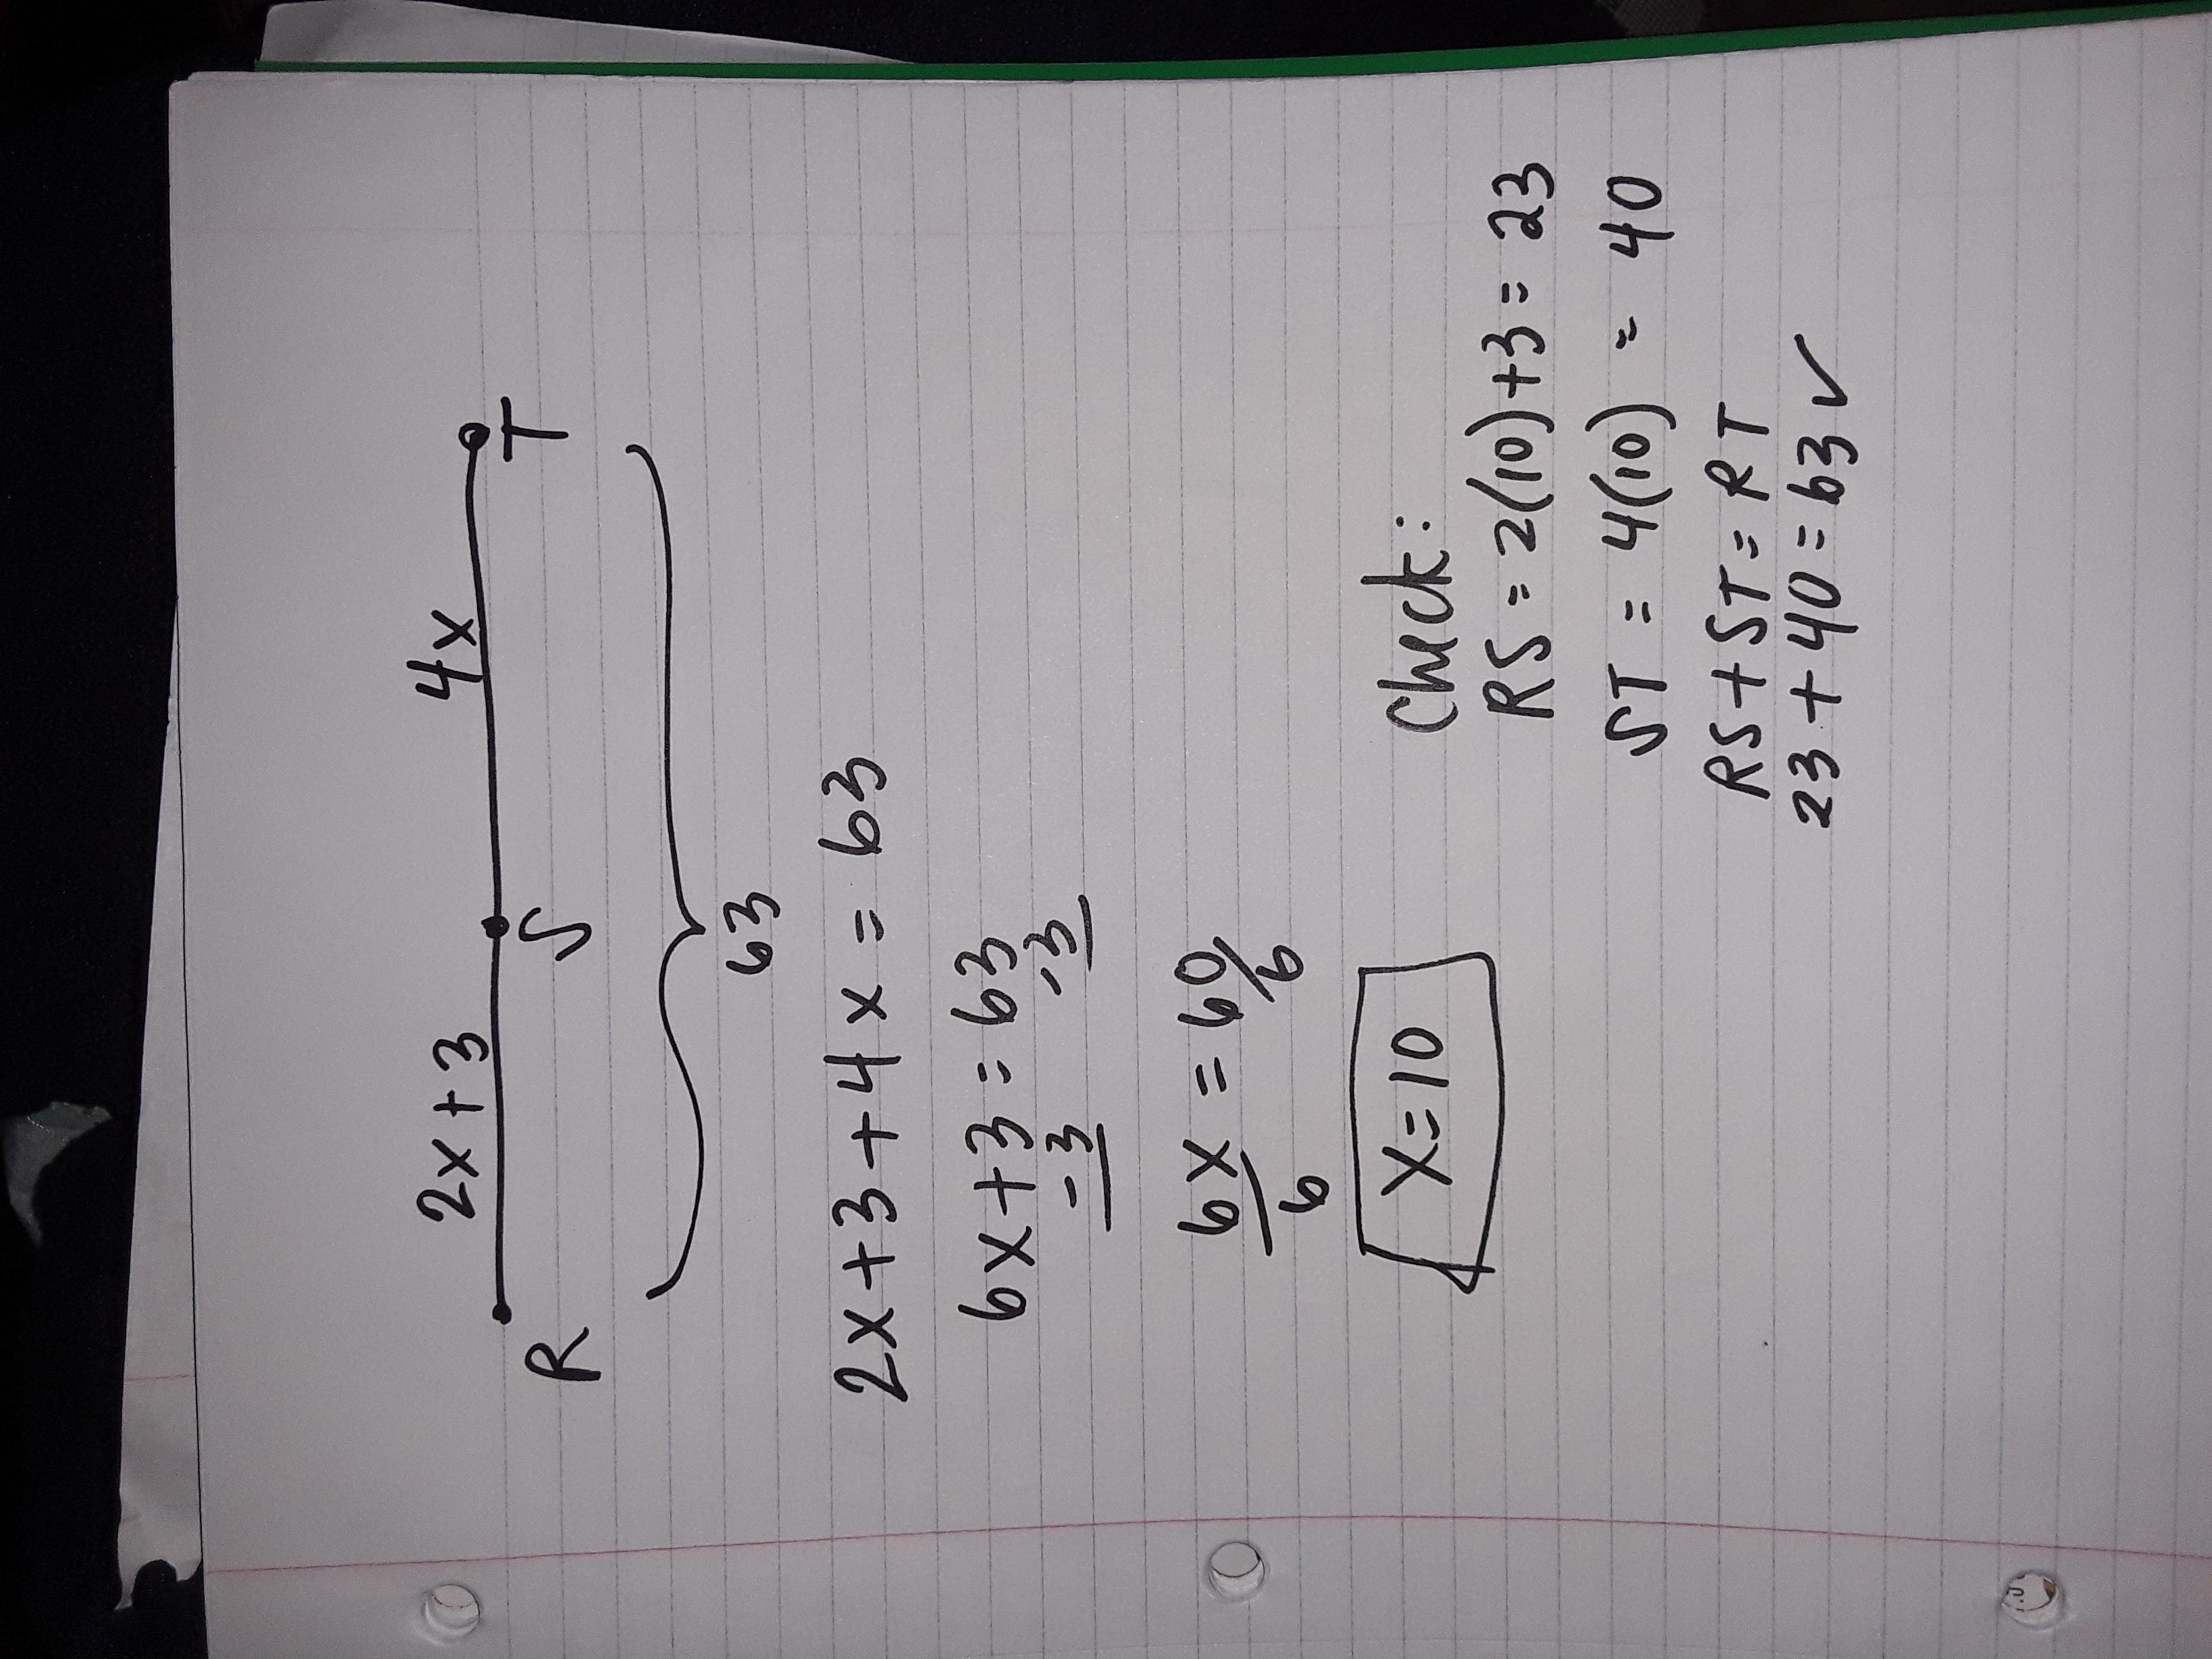 2x+3 4x
R S T
63
2x+3+4x=63
6x+3=63
-3 -3
6x=60/6
6
x=10
Check:
RS=2(10)+3=23
ST=4(10)=40
RS+ST=RT
23+40=63✓